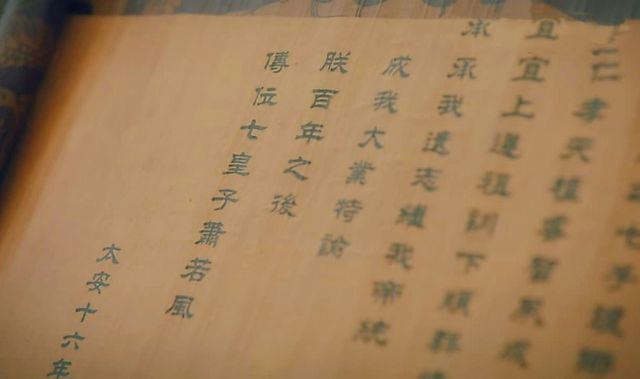 七子
仁孝天植睿智夙成
宜上遵祖訓下順群
承我遺志繼我帝統
成我大業特諭
朕百年之後
傳位七皇子蕭若風
太安十六年